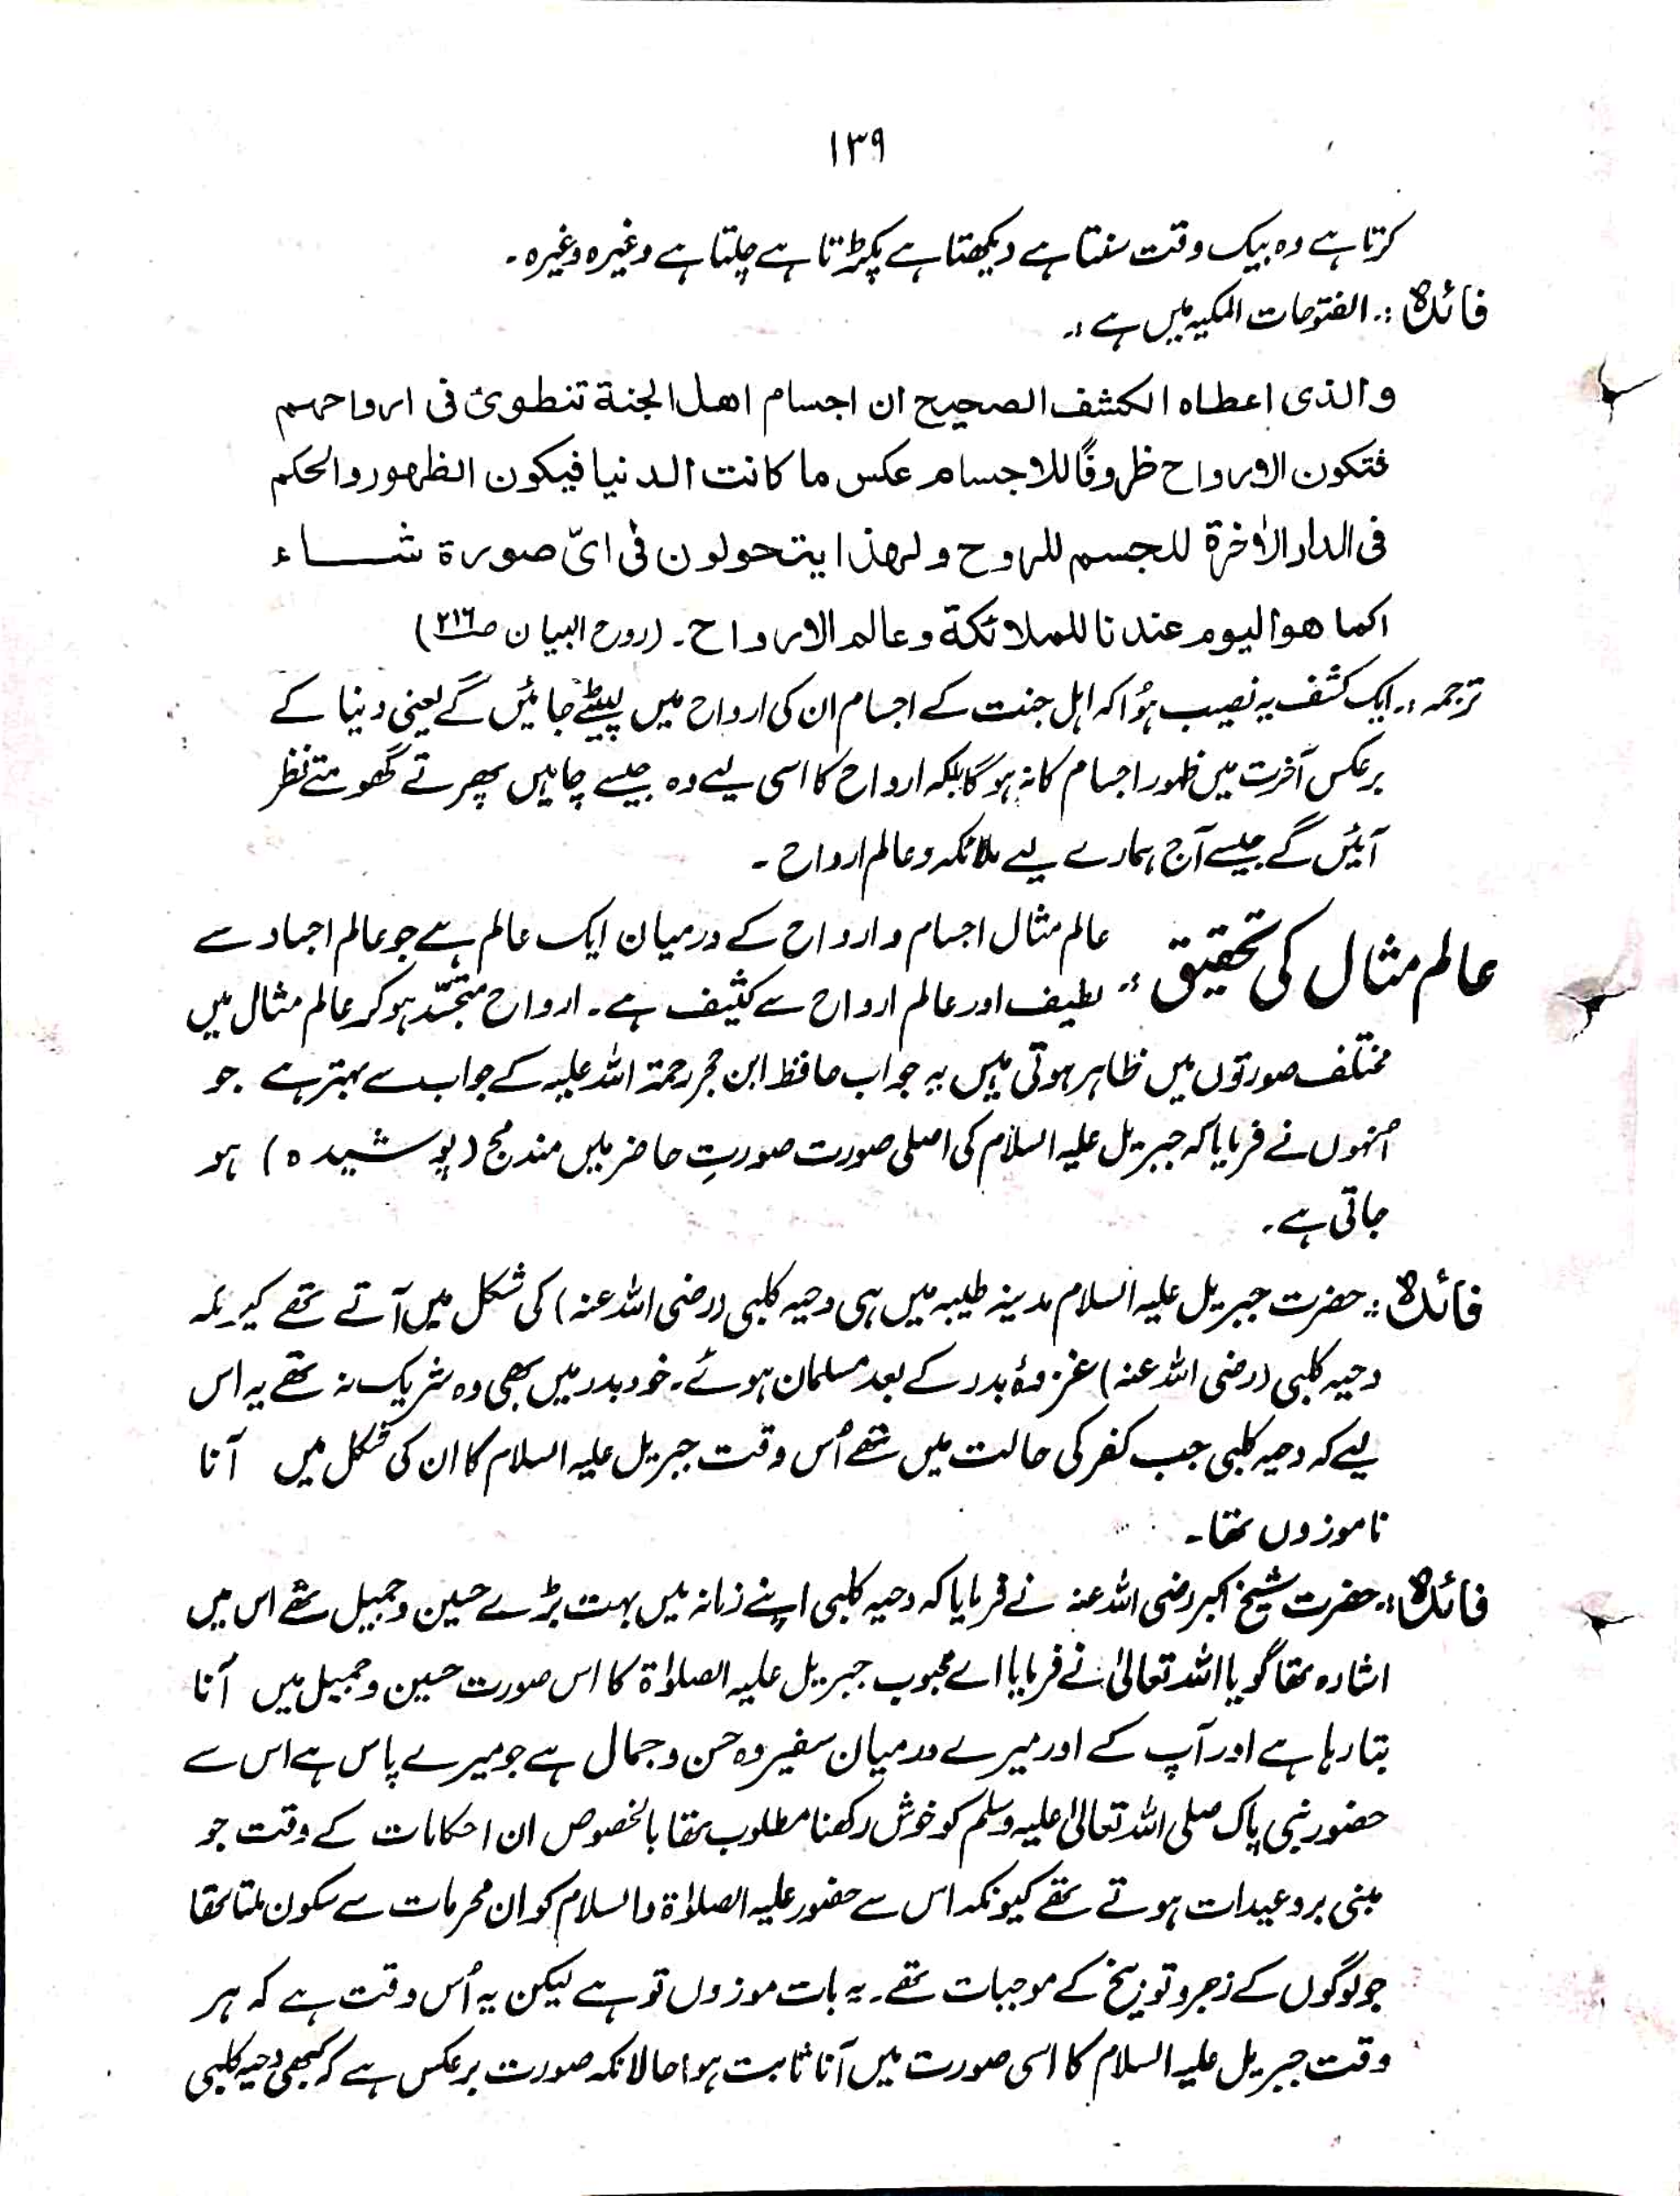 ١٣٩
کرتا ہے وہ بیک وقت سنتا ہے دیکھتا ہے پکڑتا ہے چلتا ہے وغیرہ وغیرہ۔
فائدہ :۔ الفتوحات المکیہ میں ہے :۔
والذی اعطاه الکشف الصحیح ان اجسام اهل الجنة تنطوی فی ارواحهم
فتکون الارواح ظروفًا للاجسام عکس ما کانت الدنیا فیکون الظهور والحکم
فی الدار الاٰخرة للجسم للروح ولهذا یتحولون فی ایّ صورة شاء
اکما هو الیوم عندنا للملائکة وعالم الارواح۔ (روح البیان ص٢١٦)
ترجمہ :۔ ایک کشف یہ نصیب ہُوا کہ اہل جنت کے اجسام ان کی ارواح میں لپیٹے جائیں گے یعنی دنیا کے
برعکس آخرت میں ظہور اجسام کا نہ ہو گا بلکہ ارواح کا اسی لیے وہ جیسے چاہیں پھرتے گھومتے نظر
آئیں گے جیسے آج ہمارے لیے ملائکہ وعالم ارواح ۔
عالم مثال کی تحقیق :۔ عالم مثال اجسام و ارواح کے درمیان ایک عالم ہے جو عالم اجساد سے
لطیف اور عالم ارواح سے کثیف ہے۔ ارواح متجسّد ہو کر عالم مثال میں
مختلف صورتوں میں ظاہر ہوتی ہیں یہ جواب حافظ ابن حجر رحمۃ اللہ علیہ کے جواب سے بہتر ہے جو
اُنہوں نے فرمایا کہ جبریل علیہ السلام کی اصلی صورت صورتِ حاضر میں مندمج (پوشیدہ) ہو
جاتی ہے۔
فائدہ :۔ حضرت جبریل علیہ السلام مدینہ طیبہ میں ہی دحیہ کلبی (رضی اللہ عنہ) کی شکل میں آتے تھے کیونکہ
دحیہ کلبی (رضی اللہ عنہ) غزوۂ بدر کے بعد مسلمان ہوئے۔ خود بدر میں بھی وہ شریک نہ تھے یہ اس
لیے کہ دحیہ کلبی جب کفر کی حالت میں تھے اُس وقت جبریل علیہ السلام کا ان کی شکل میں آنا
ناموزوں تھا۔
فائدہ :۔ حضرت شیخ اکبر رضی اللہ عنہ نے فرمایا کہ دحیہ کلبی اپنے زمانہ میں بہت بڑے حسین و جمیل تھے اس میں
اشارہ تھا گویا اللہ تعالیٰ نے فرمایا اے محبوب جبریل علیہ الصلوٰۃ کا اس صورت حسین و جمیل میں آنا
بتا رہا ہے اور آپ کے اور میرے درمیان سفیر وہ حسن و جمال ہے جو میرے پاس ہے اس سے
حضور نبی پاک صلی اللہ تعالیٰ علیہ وسلم کو خوش رکھنا مطلوب تھا بالخصوص ان احکامات کے وقت جو
مبنی بر وعیدات ہوتے تھے کیونکہ اس سے حضور علیہ الصلوٰۃ والسلام کو ان محرمات سے سکون ملتا تھا
جو لوگوں کے زجر و توبیخ کے موجبات تھے۔ یہ بات موزوں تو ہے لیکن یہ اُس وقت ہے کہ ہر
وقت جبریل علیہ السلام کا اسی صورت میں آنا ثابت ہوا حالانکہ صورت برعکس ہے کہ کبھی دحیہ کلبی